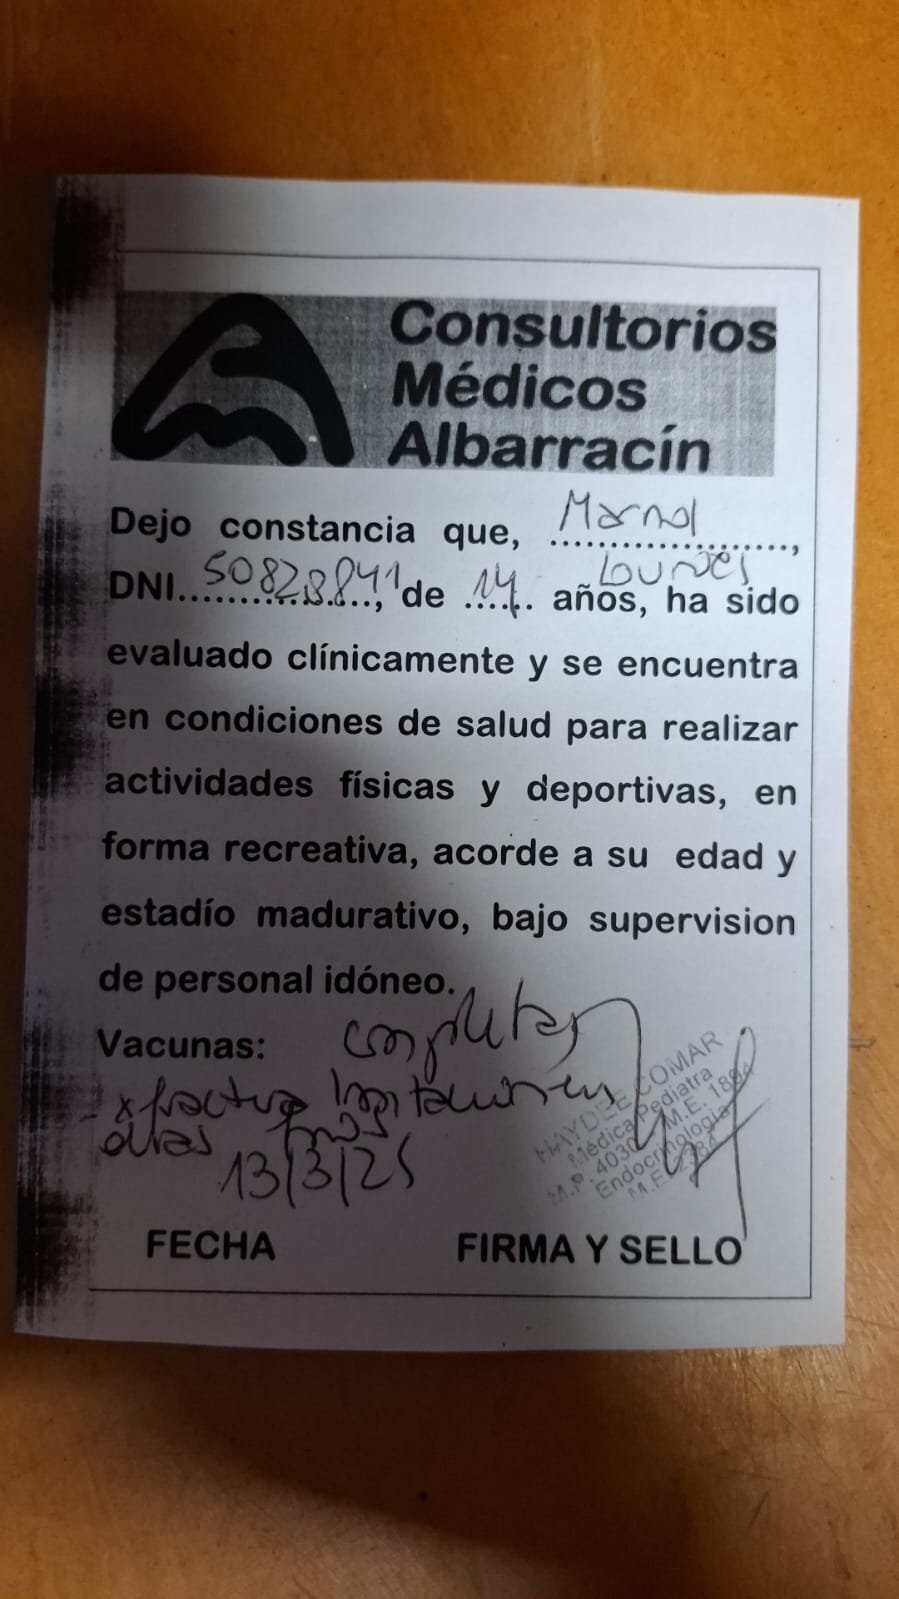 Consultorios
Médicos
Albarracín
Dejo constancia que, Marnol
Lourdes
DNI 50828841, de 14 años, ha sido
evaluado clínicamente y se encuentra
en condiciones de salud para realizar
actividades físicas y deportivas, en
forma recreativa, acorde a su edad y
estadío madurativo, bajo supervision
de personal idóneo.
Vacunas: completas
13/3/25
HAYDEE COMAR
Médica Pediatra
M.E. 1884
Endocrinología
FECHA
FIRMA Y SELLO